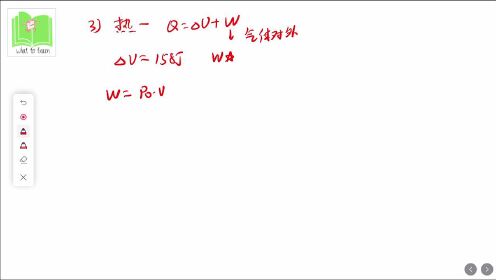 what to learn
3) 热一 Q=ΔU+W
↓ 气体对外
ΔU=158J W
W= P₀·V